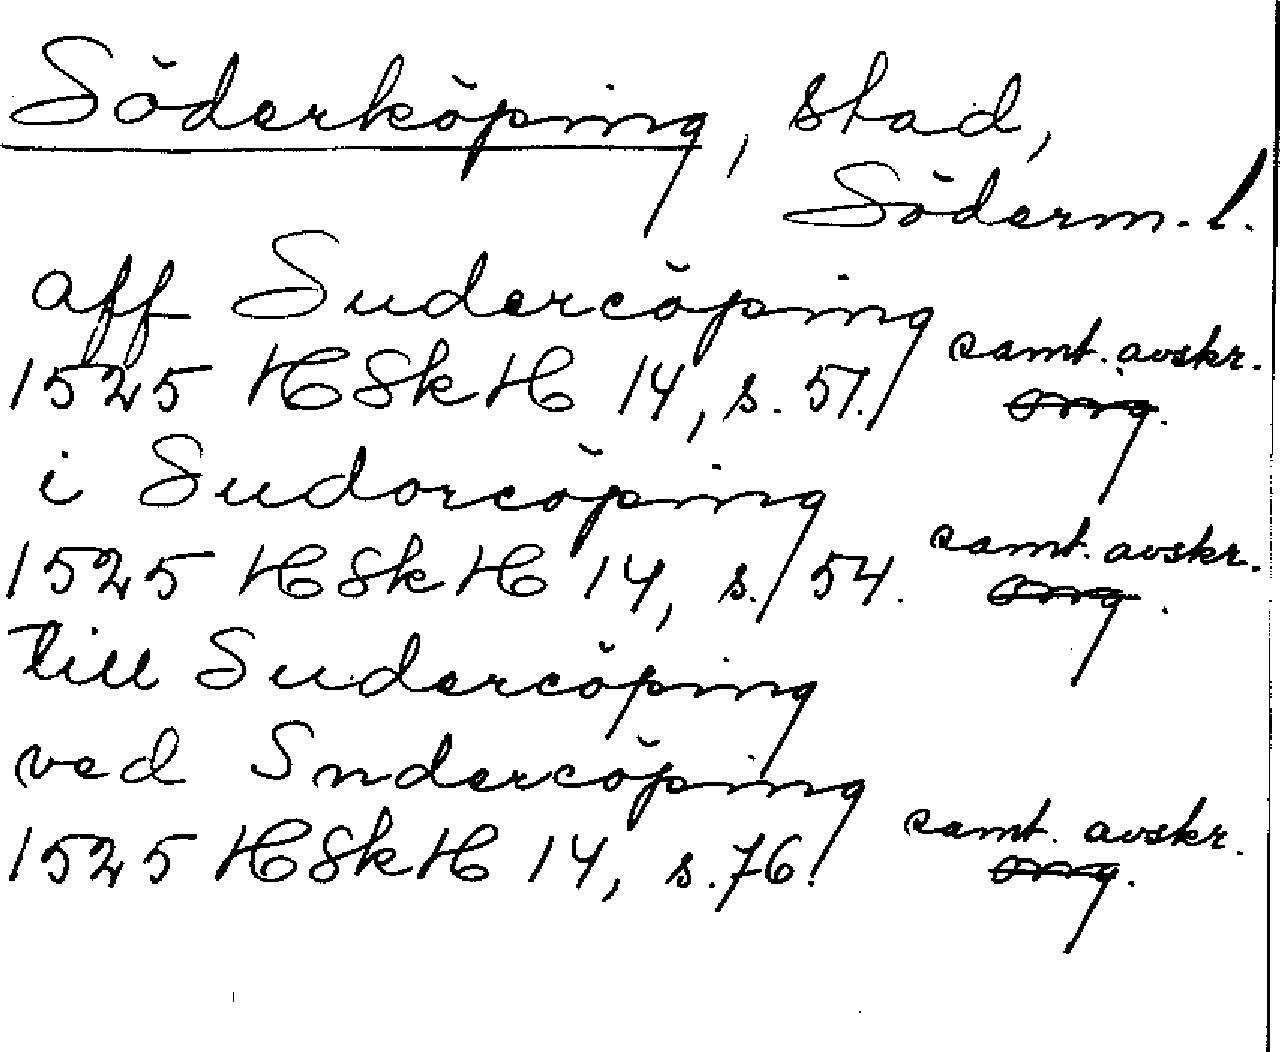 Söderköping, stad,
Söderm. l.
aff Sudercöping
1525 HSkH 14, s. 51. samt. avskr.
orig.
i Sudorcöping
1525 HSkH 14, s. 54. samt. avskr.
orig.
till Sudercöping
ved Sndercöping
1525 HSkH 14, s. 76. samt. avskr.
orig.